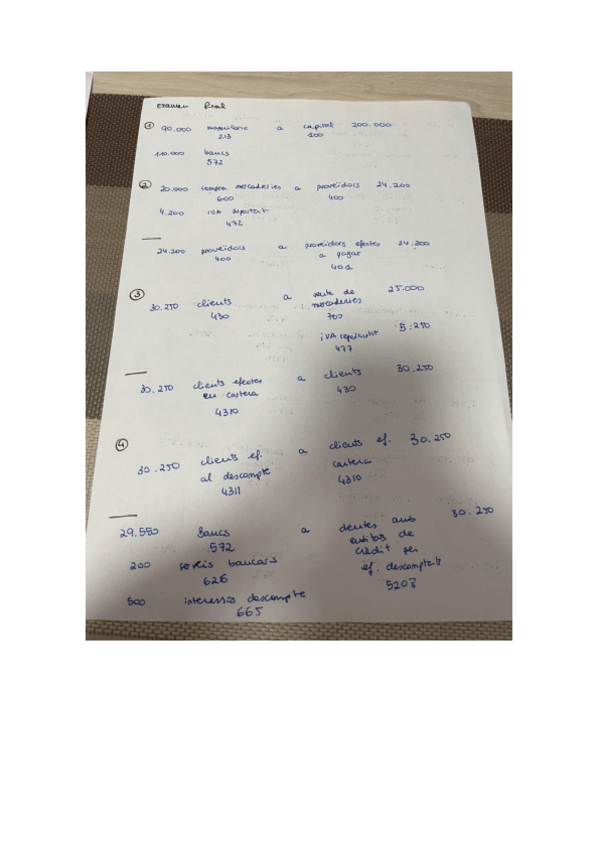 examen final
① 90.000 maquinaria a capital 200.000
213 100
110.000 bancs
572
② 20.000 compra mercaderies a proveïdors 24.200
600 400
4.200 iVA suportat
472
24.200 proveïdors a proveïdors efectes 24.200
400 a pagar
401
③ 30.250 clients a venta de 25.000
430 mercaderies
700
iVA repercutit 5.250
477
30.250 clients efectes a clients 30.250
en cartera 430
4310
④ 30.250 clients ef. a clients ef. 30.250
al descompte cartera
4311 4310
29.550 Bancs a deutes amb 30.250
572 entitas de
200 serveis bancaris crèdit per
626 ef. descomptats
5208
500 interessos descompte
665